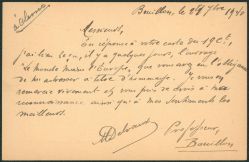 Bouillon, le 28 7bre 1940
Messieurs,
En réponse à votre carte du 19 Ct,
j'ai bien reçu, il y a quelques jours, l'ouvrage
"Le monde d'Europe, que vous avez eu l'obligeance
de m'adresser à titre d'hommage. Je vous
remercie vivement et vous prie de croire à ma
reconnaissance ainsi qu'à mes sentiments les
meilleurs.
Professeur,
Bouillon